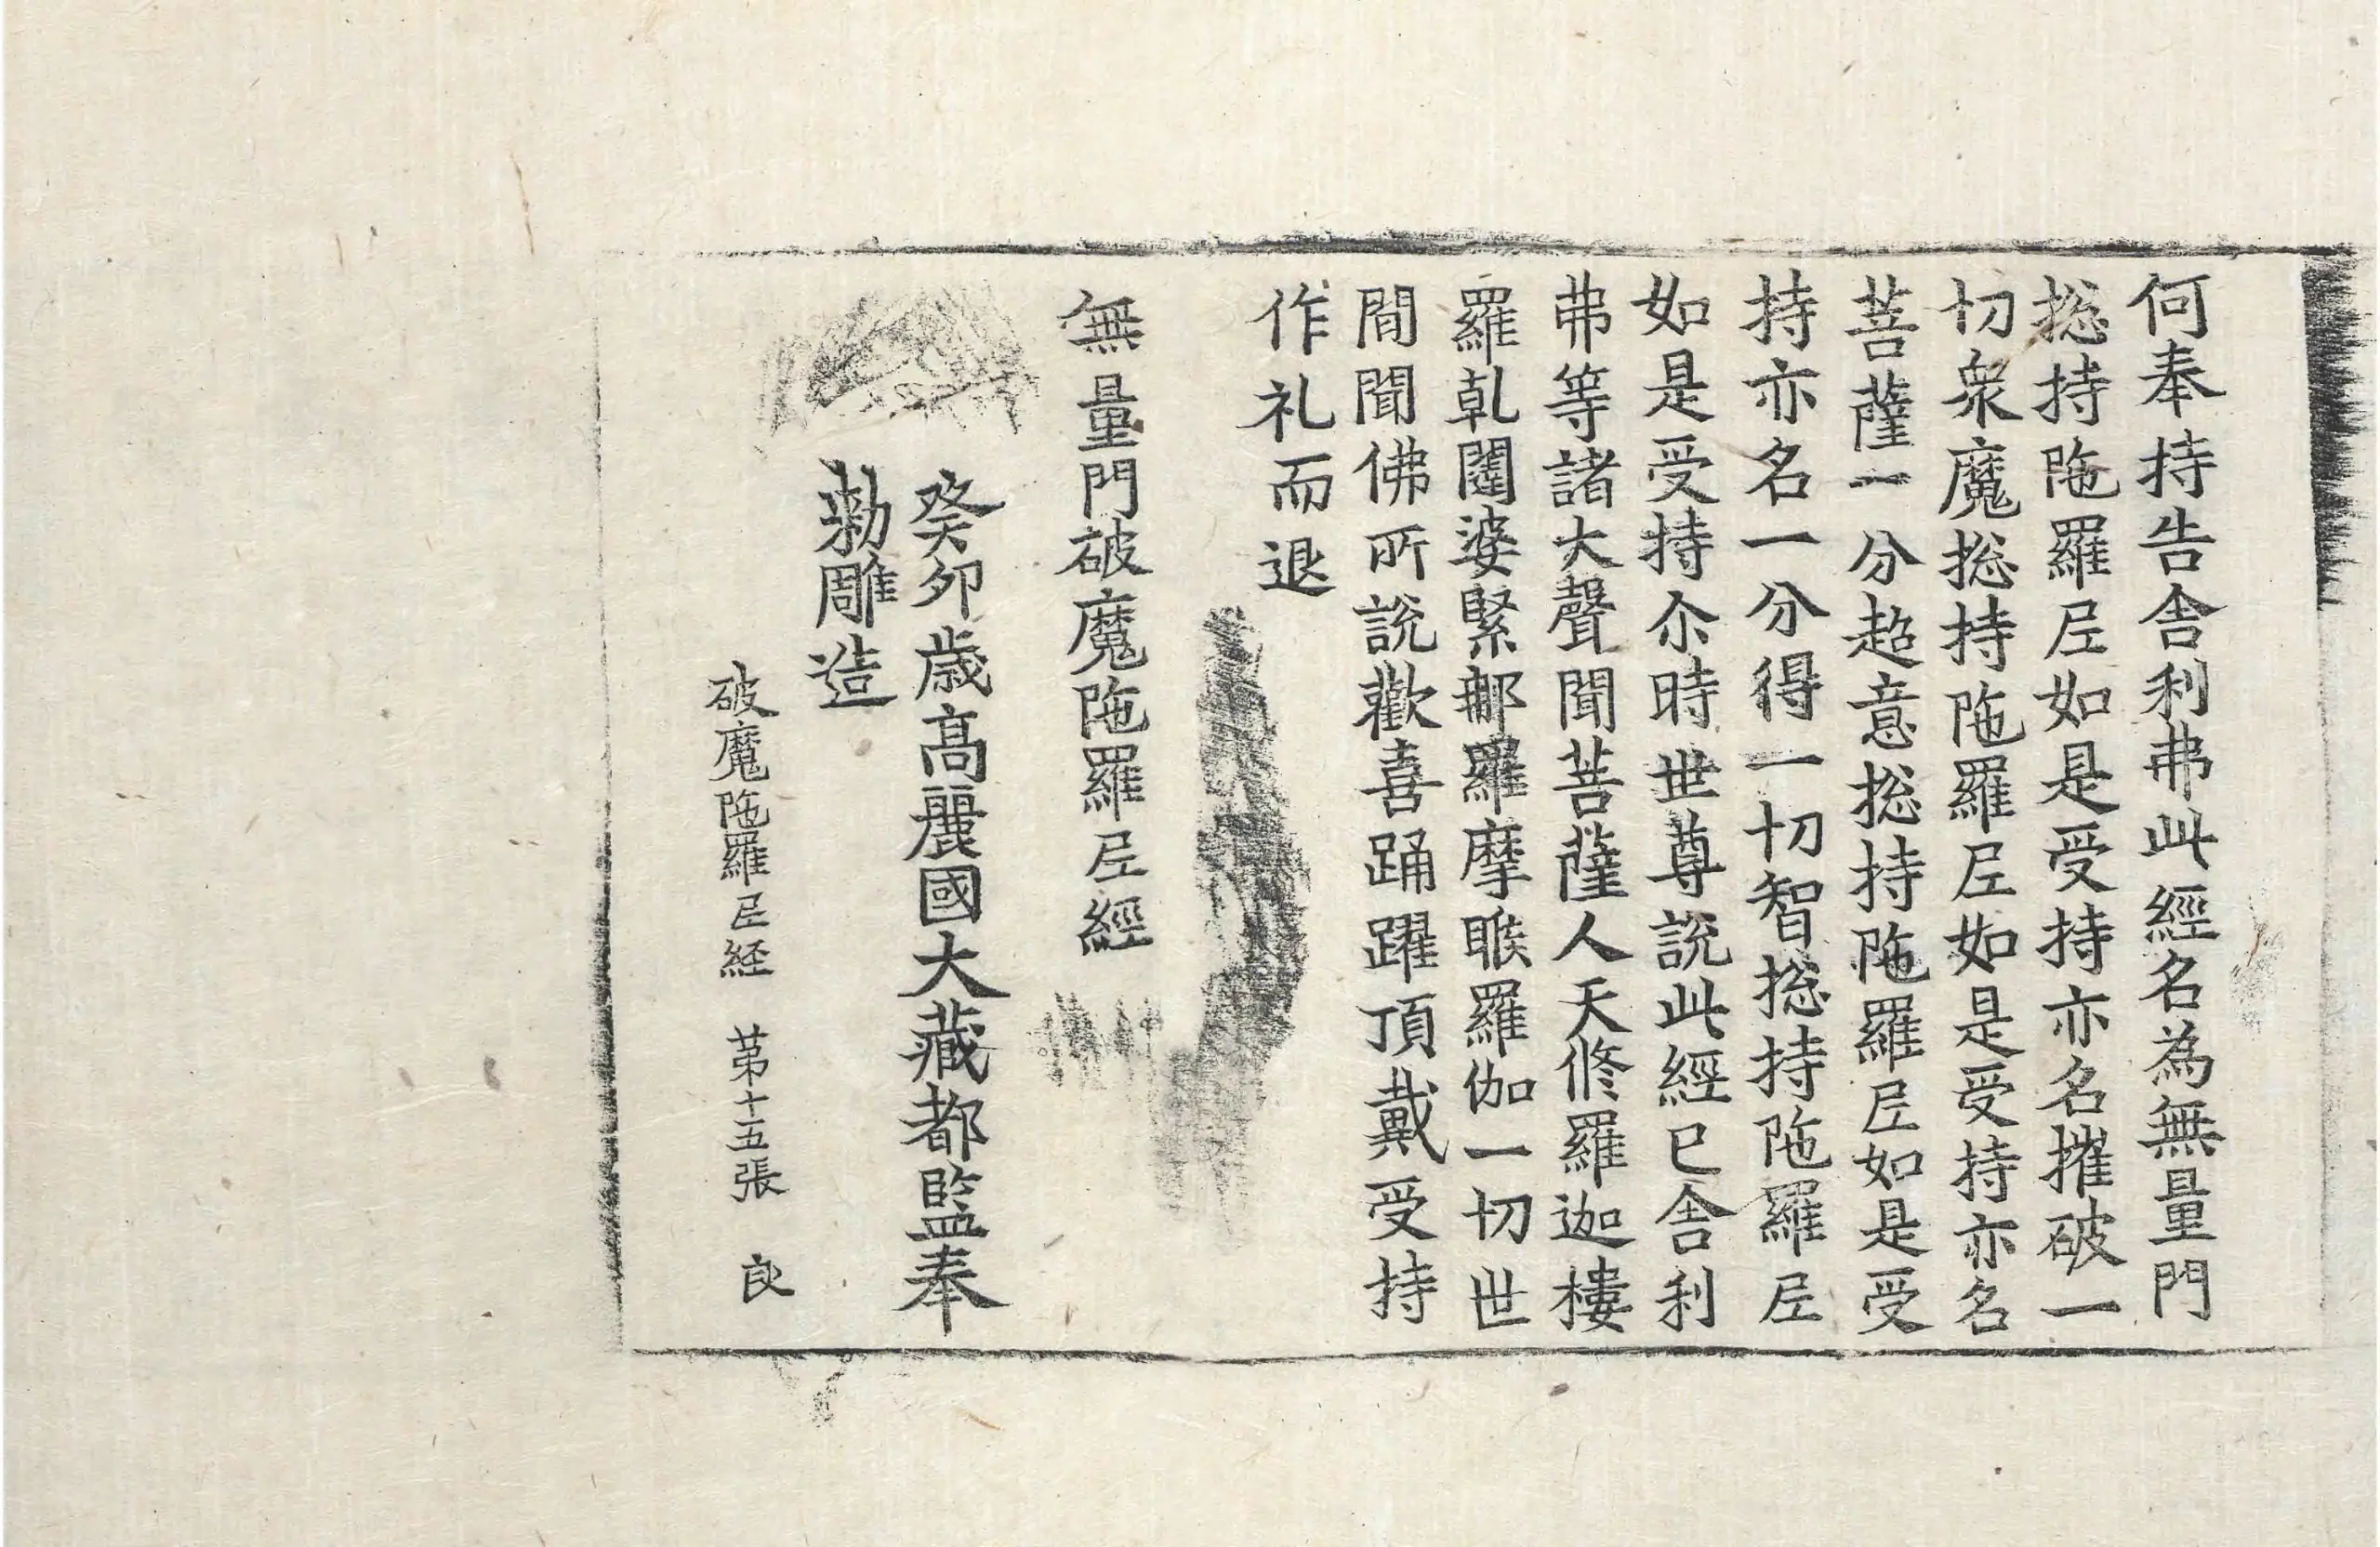 何奉持告舎利弗此經名為無量門
捴持陁羅𡰱如是受持亦名摧破一
切衆魔捴持陁羅𡰱如是受持亦名
菩薩一分超意捴持陁羅𡰱如是受
持亦名一分得一切智捴持陁羅𡰱
如是受持尒時世尊說此經已舎利
弗等諸大聲聞菩薩人天脩羅迦樓
羅乹闥婆緊那羅摩睺羅伽一切世
間聞佛所說歡喜踊躍頂戴受持
作礼而退
無量門破魔陁羅𡰱經
癸卯歲高麗國大藏都監奉
勅雕造
破魔陁羅𡰱経 苐十五張 良